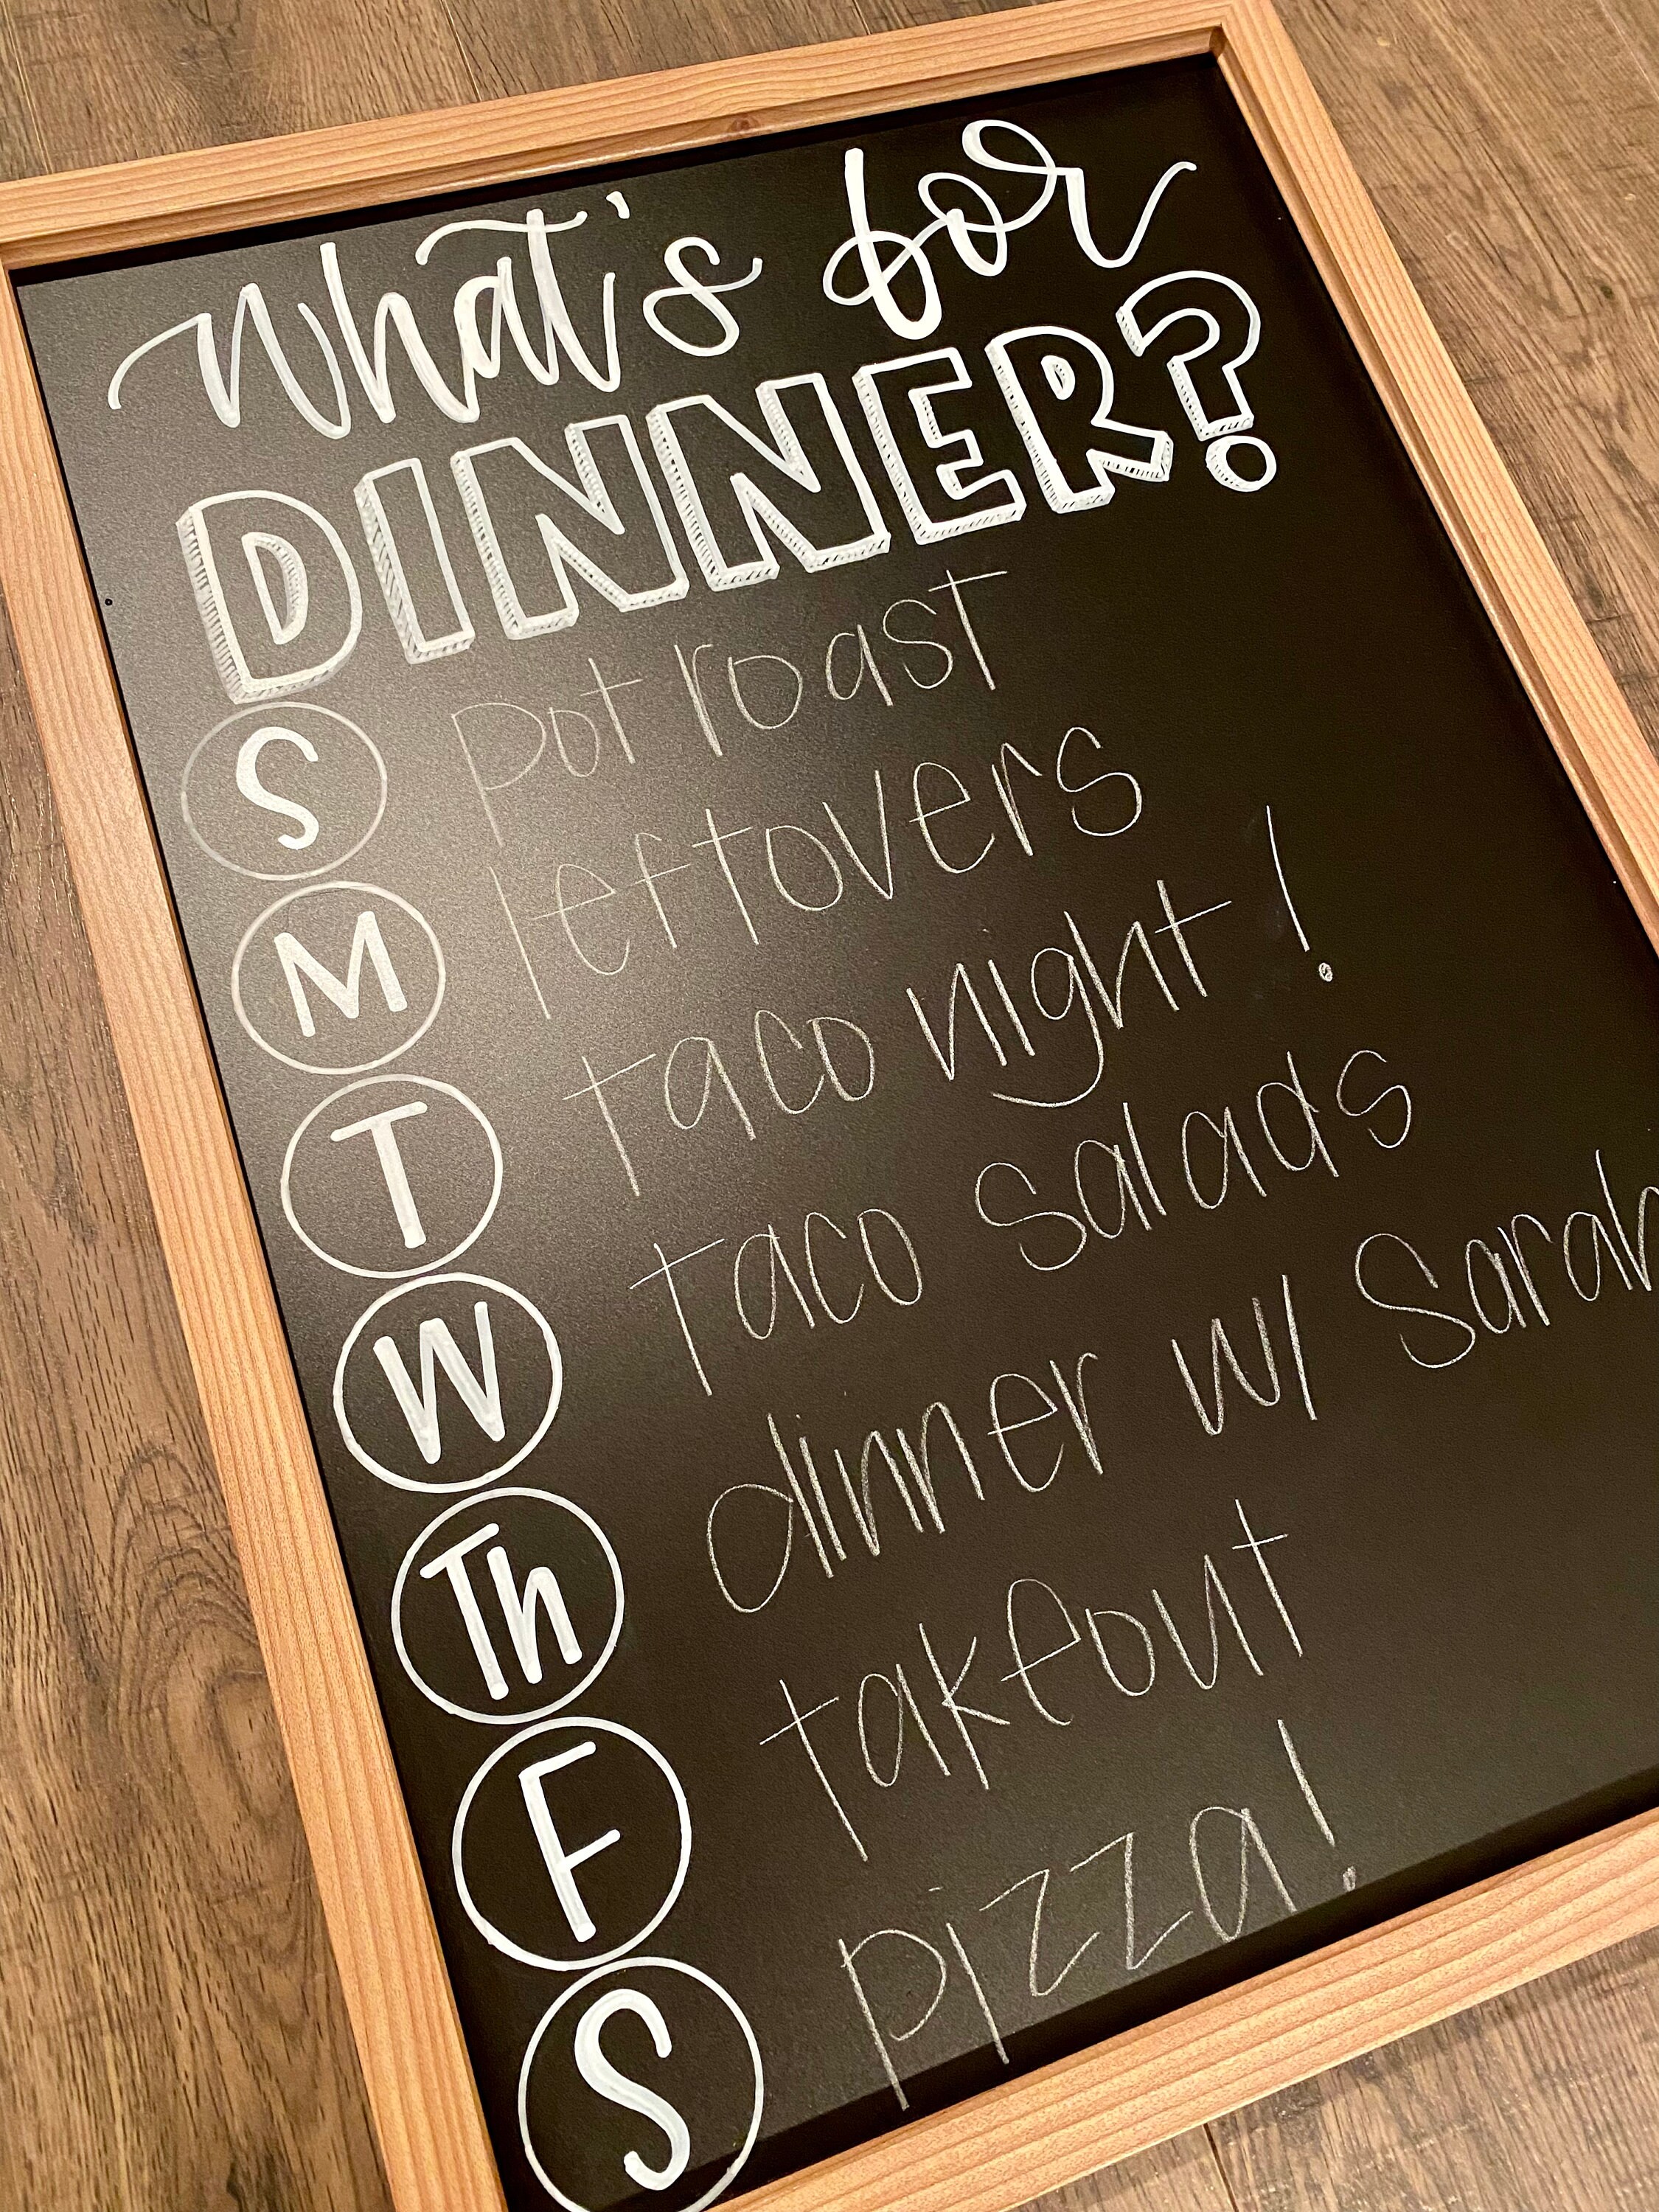 What's for
DINNER?
S pot roast
M leftovers
T taco night!
W taco salads
Th dinner w/ Sarah
F takeout
S pizza!